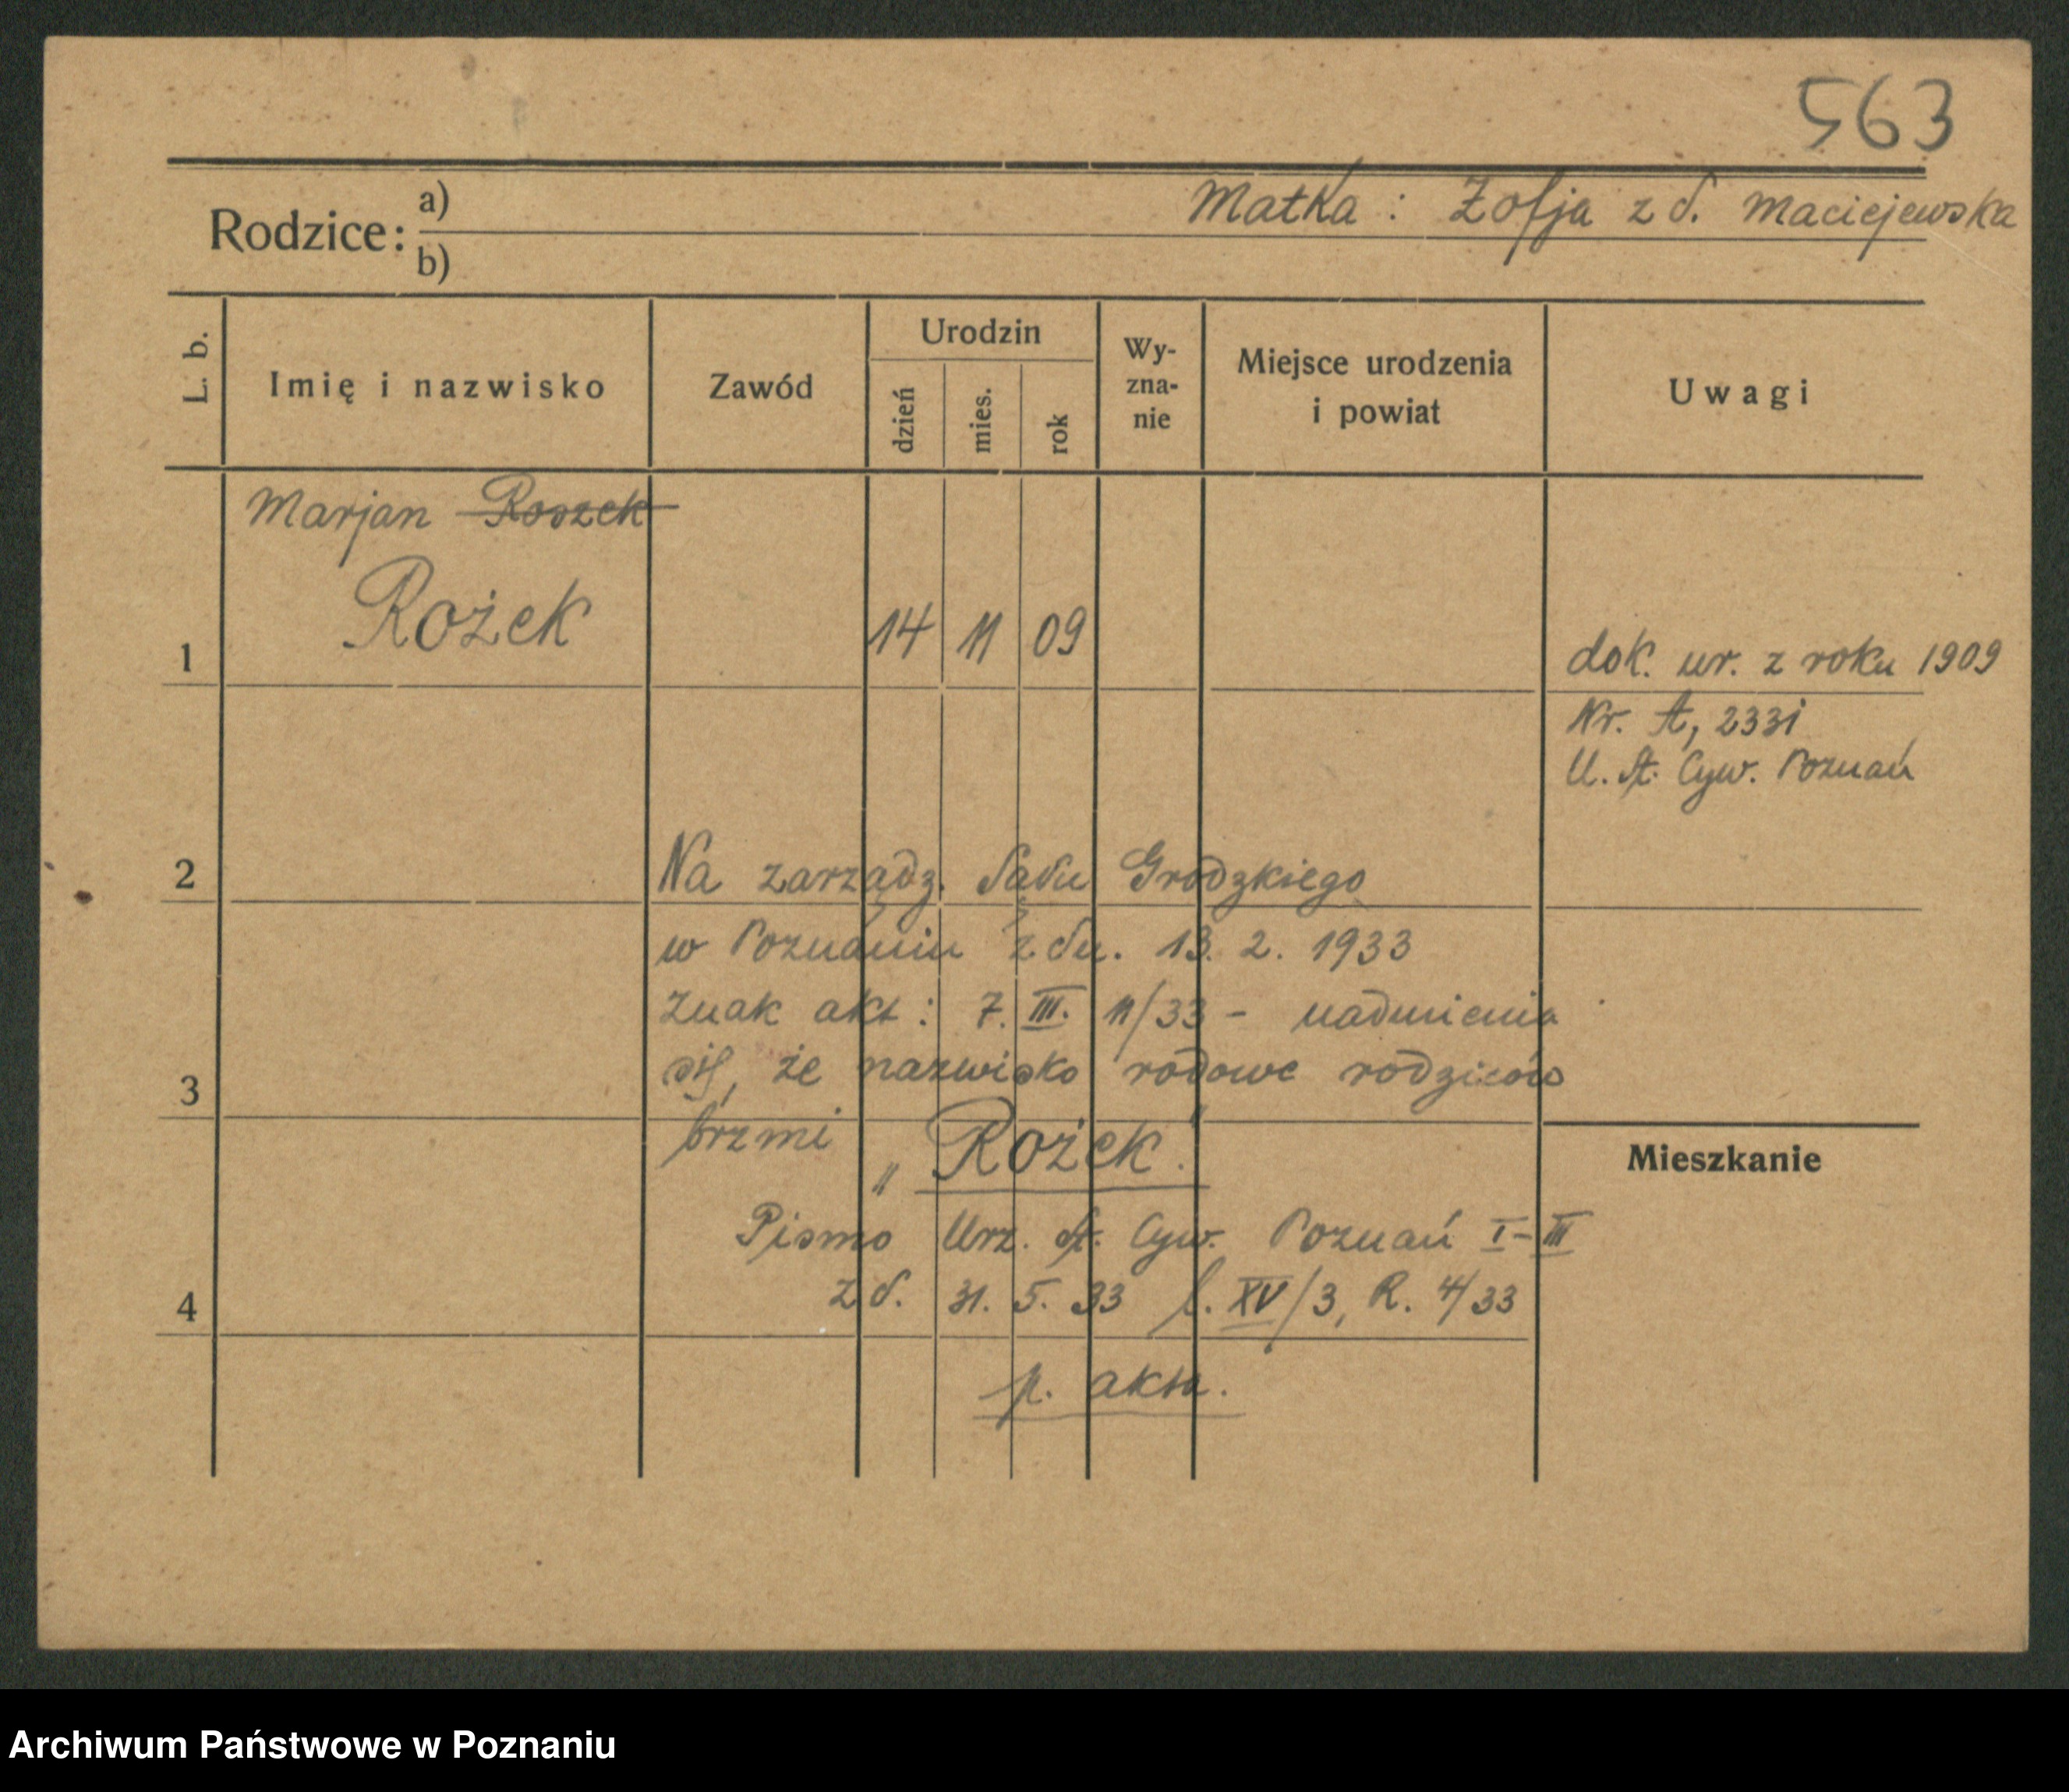 563
Rodzice:
a)
Matka: Zofja z d. Maciejewska
b)
L. b.
Imię i nazwisko
Zawód
Urodzin
dzień
mies.
rok
Wy-
zna-
nie
Miejsce urodzenia
i powiat
Uwagi
Marjan Roszek
Rożek
1
14 11 09
dok. ur. z roku 1909
Nr. A, 2331
U. St. Cyw. Poznań
2
Na zarządz. Sądu Grodzkiego
w Poznaniu z dn. 13. 2. 1933
znak akt: 7. III. 11/33 - nadmienia
się, że nazwisko rodowe rodziców
3
brzmi „Rożek".
Mieszkanie
Pismo Urz. St. Cyw. Poznań I-III
z d. 31. 5. 33 l. XV/3, R. 4/33
4
p. akta.
Archiwum Państwowe w Poznaniu